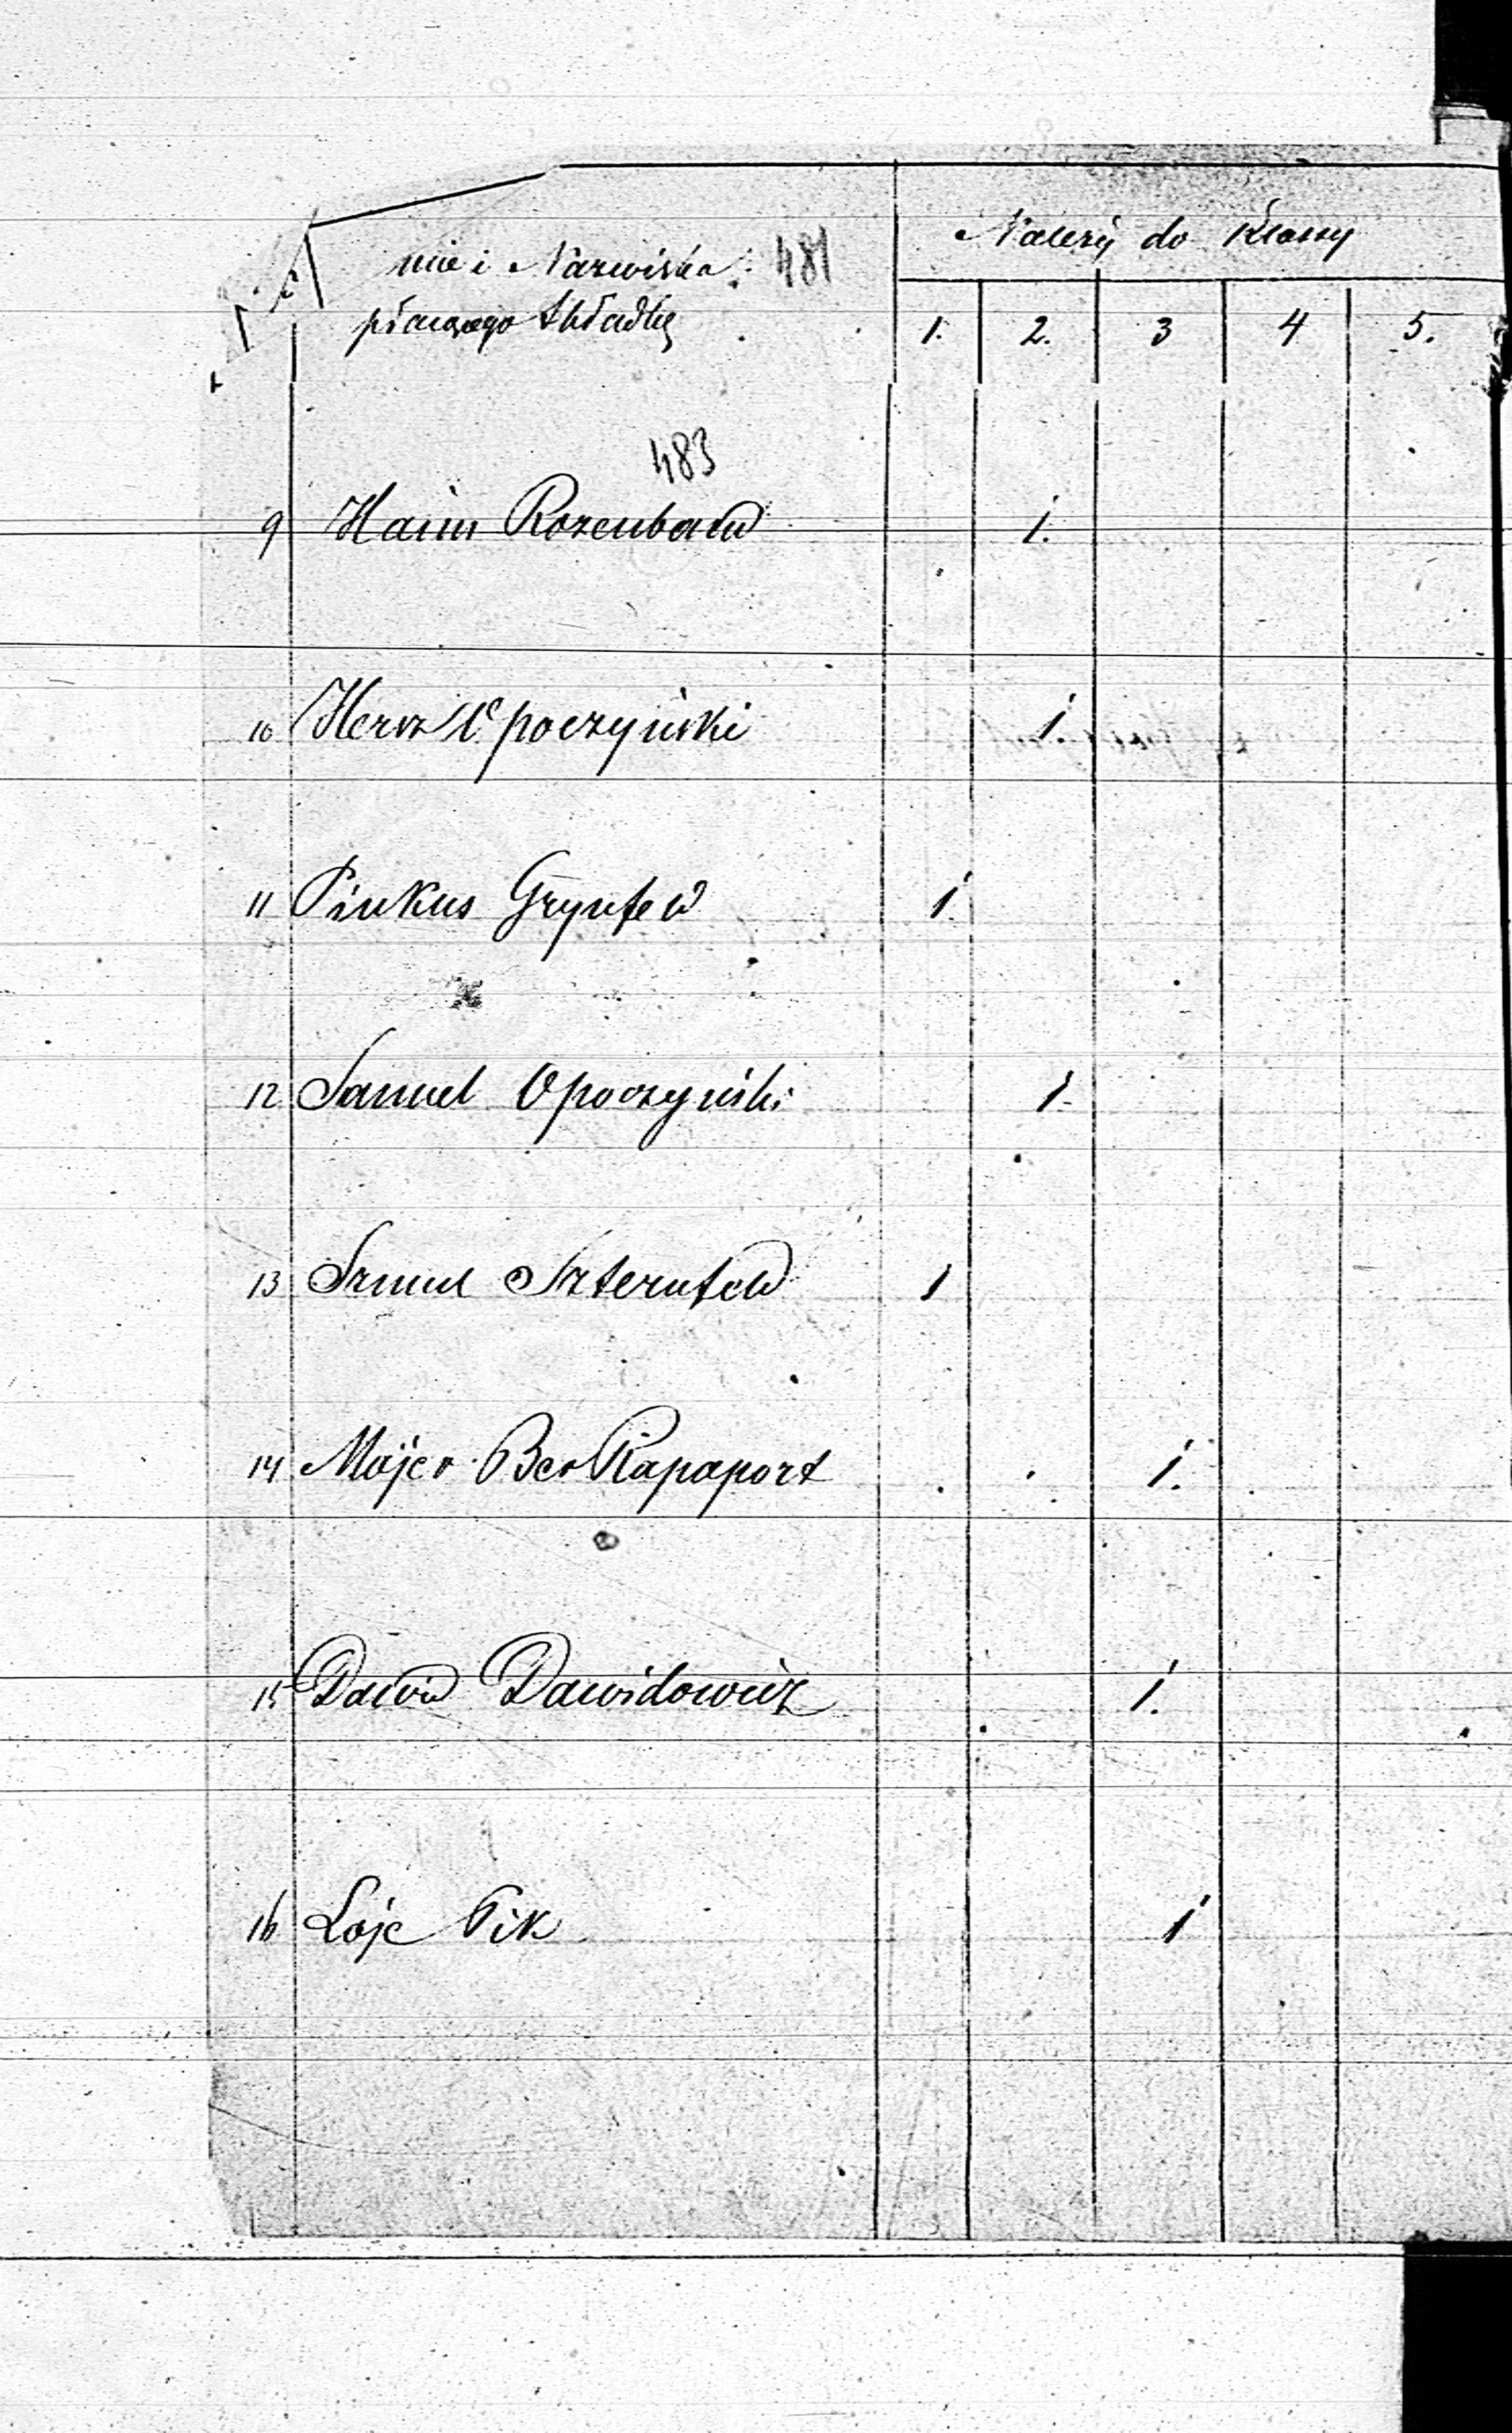 mie i Nazwiska 481
płacącego Składkę
Należy do Klassy
1. 2. 3 4 5.
483
9 Haim Rozenband 1.
10 Hersz Opoczyński 1.
11 Pinkus Grynfeld 1.
12 Samuel Opoczyński 1.
13 Szmul Szternfeld 1
14 Majer Ber Rapaport 1.
15 Dawid Dawidowicz 1.
16 Loje Pik 1